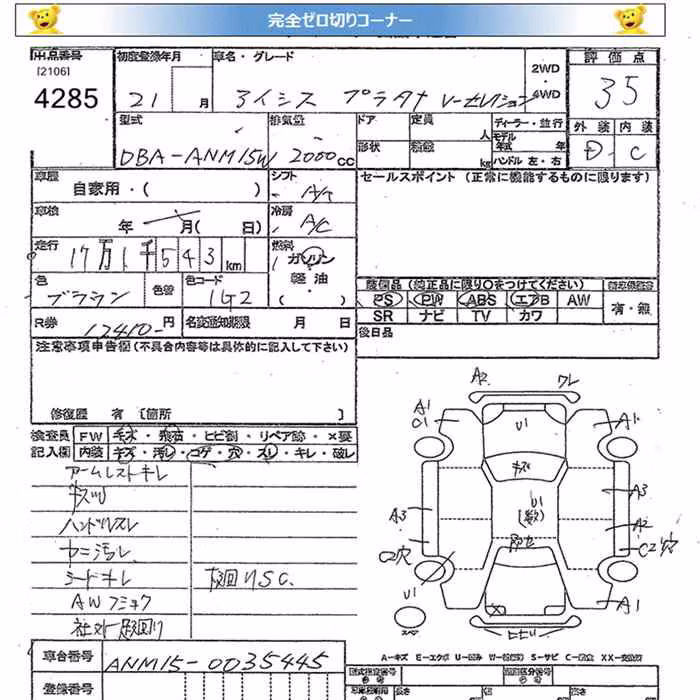 完全ゼロ切りコーナー
出品番号 初度登録年月 車名・グレード 2WD 評価点
[2106]
4285 21 月 アイシス プラタナ V-セレクション 4WD 3 5
型式 排気量 ドア 定員 ディーラー・並行 外装 内装
人 モデル年式 年
DBA-ANM15W 2000cc 形状 積載 kg ハンドル 左・右 D C
車歴 自家用・( ) シフト A/T セールスポイント (正常に機能するものに限ります)
車検 年 月( 日) 冷房 A/C
走行 17万1千543km 燃料 ガソリン
軽油
・( )
色 ブラウン 色替 色コード 1G2
装備品 (純正品に限り○をつけてください)
PS PW ABS エアB AW 有・無
SR ナビ TV カワ
R券 12410-円 名変通知期限 月 日 後日品
注意事項申告欄 (不具合内容等は具体的に記入して下さい)
修復歴 有 [箇所 ]
検査員 FW キズ・飛石・ヒビ割・リペア跡・×要
記入欄 内装 キズ・汚レ・コゲ・穴・スレ・キレ・破レ
アームレストキレ
ハンドルスレ
シートキレ
AW
下廻りSC.
A2 ワレ
A1 C1 U1 A1
キズ
A3 U1 (数) A3
A2
C2穴 C2穴
U1 A1
スペア ×
A-キズ E-エクボ U-凹み S-サビ XX-交換済
車台番号 ANM15-0035445
登録番号